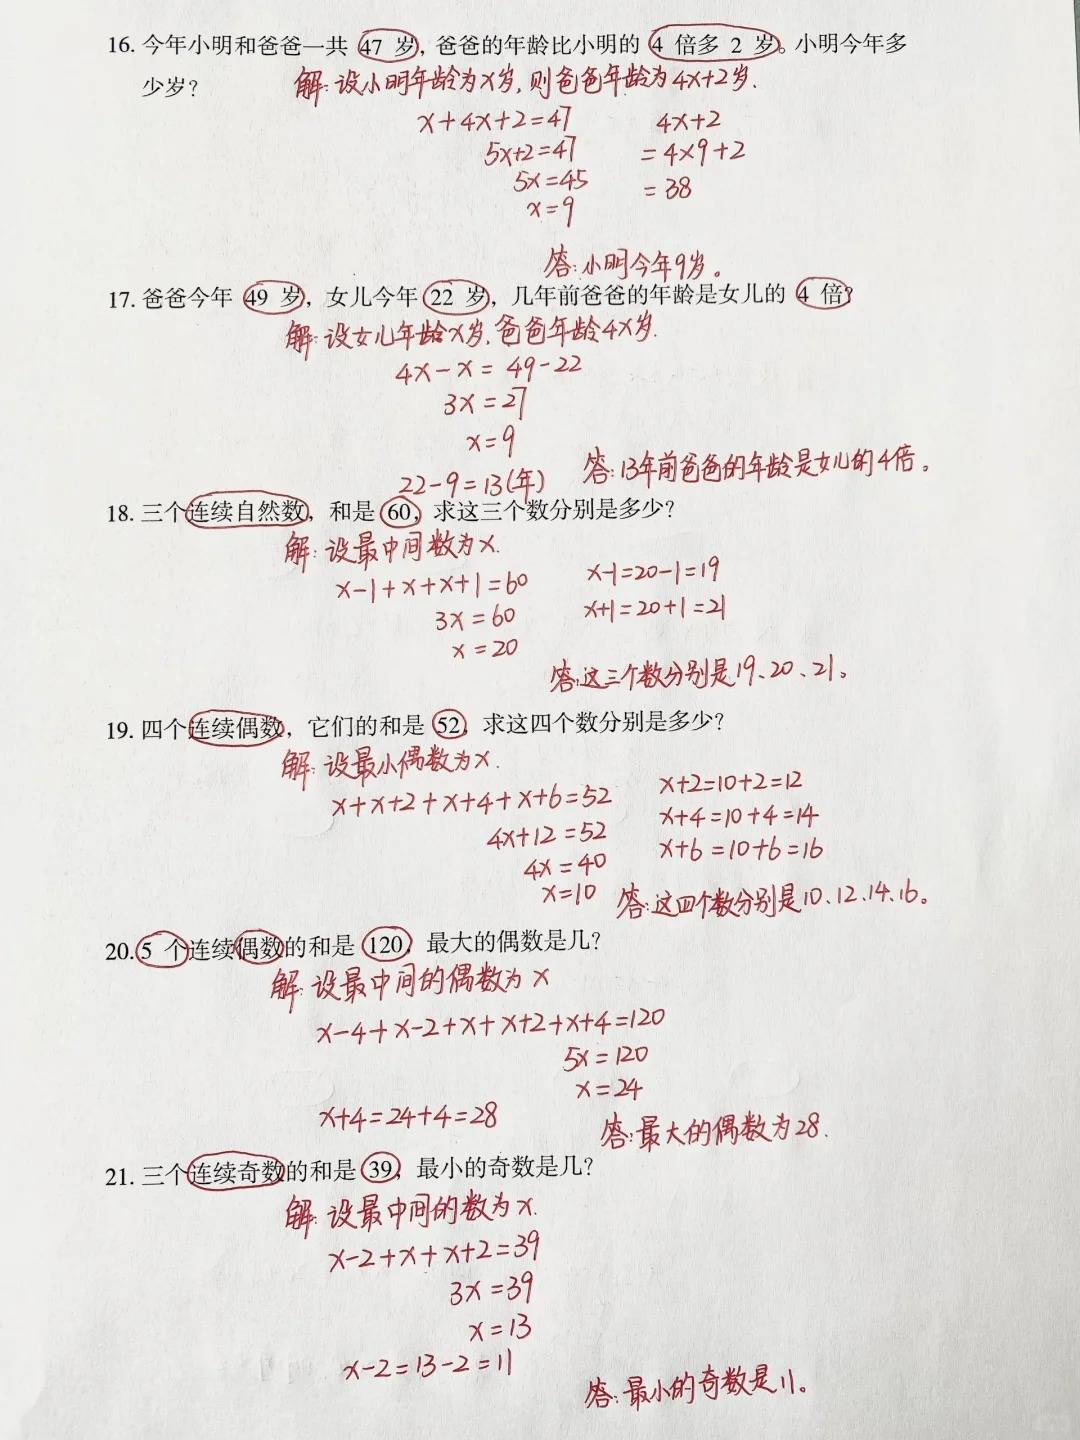 16. 今年小明和爸爸一共 47 岁，爸爸的年龄比小明的 4 倍多 2 岁。小明今年多
少岁？
解：设小明年龄为x岁，则爸爸年龄为4x+2岁.
x+4x+2=47 4x+2
5x+2=47 =4×9+2
5x=45 =38
x=9
答：小明今年9岁。
17. 爸爸今年 49 岁，女儿今年 22 岁，几年前爸爸的年龄是女儿的 4 倍？
解：设女儿年龄x岁，爸爸年龄4x岁.
4x-x=49-22
3x=27
x=9
22-9=13(年) 答：13年前爸爸的年龄是女儿的4倍。
18. 三个连续自然数，和是 60，求这三个数分别是多少？
解：设最中间数为x.
x-1+x+x+1=60 x-1=20-1=19
3x=60 x+1=20+1=21
x=20
答：这三个数分别是19、20、21。
19. 四个连续偶数，它们的和是 52，求这四个数分别是多少？
解：设最小偶数为x.
x+x+2+x+4+x+6=52 x+2=10+2=12
4x+12=52 x+4=10+4=14
4x=40 x+6=10+6=16
x=10 答：这四个数分别是10、12、14、16。
20. 5 个连续偶数的和是 120，最大的偶数是几？
解：设最中间的偶数为x
x-4+x-2+x+x+2+x+4=120
5x=120
x=24
x+4=24+4=28
答：最大的偶数为28.
21. 三个连续奇数的和是 39，最小的奇数是几？
解：设最中间的数为x.
x-2+x+x+2=39
3x=39
x=13
x-2=13-2=11
答：最小的奇数是11。